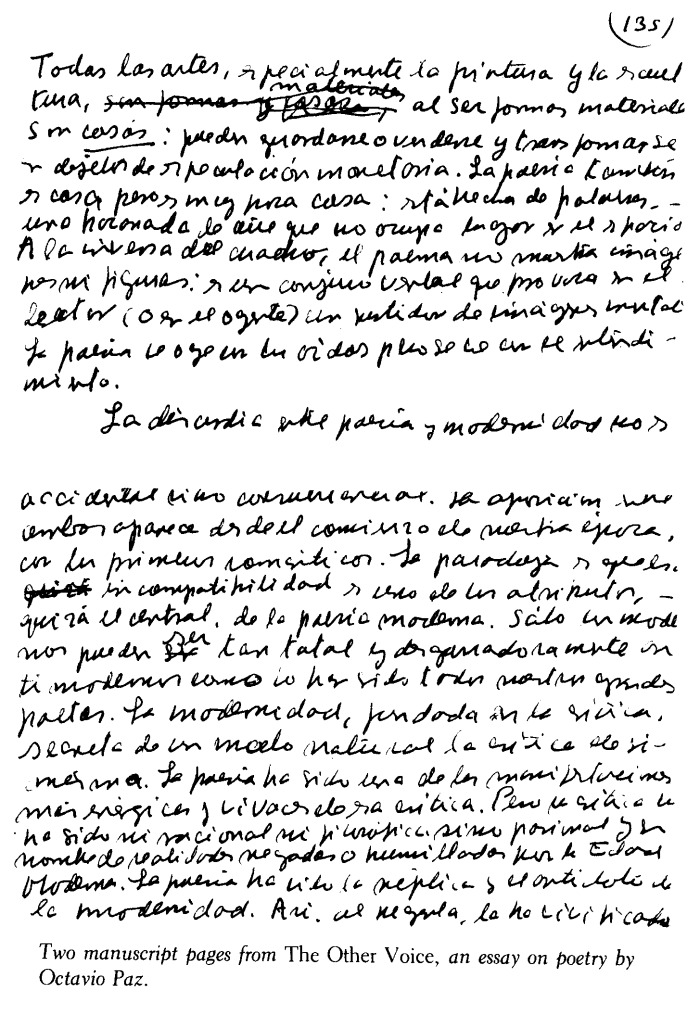 (135)
Todas las artes, especialmente la pintura y la escul
tura, son formas y cosas, materiales al ser formas materiales
son cosas: pueden guardarse o venderse y transformarse
en objetos de especulación monetaria. La poesía también
es cosa pero es muy poca cosa: está hecha de palabras, -
una bocanada de aire que no ocupa lugar en el espacio
A la inversa del cuadro, el poema no muestra imáge
nes ni figuras: es un conjuro verbal que provoca en el
lector (o en el oyente) un surtidor de imágenes mentales
La poesía se oye con los oídos pero se ve con el entendi-
miento.
La discordia entre poesía y modernidad no es
accidental sino consubstancial. La oposición entre
ambas aparece desde el comienzo de nuestra época,
con los primeros románticos. La paradoja es que esa
quizá incompatibilidad es uno de los atributos, -
quizá el central, de la poesía moderna. Sólo los moder
nos pueden ser tan total y desgarradoramente an
timodernos como lo han sido todos nuestros grandes
poetas. La modernidad, fundada en la crítica,
secreta de un modo natural la crítica de sí-
misma. La poesía ha sido una de las manifestaciones
más enérgicas y vivaces de esa crítica. Pero su crítica no
ha sido ni racional ni filosófica sino pasional y en
nombre de realidades negadas o humilladas por la Edad
Moderna. La poesía ha sido la réplica y el antídoto de
la modernidad. Así, al negarla, la ha vivificado
Two manuscript pages from The Other Voice, an essay on poetry by
Octavio Paz.